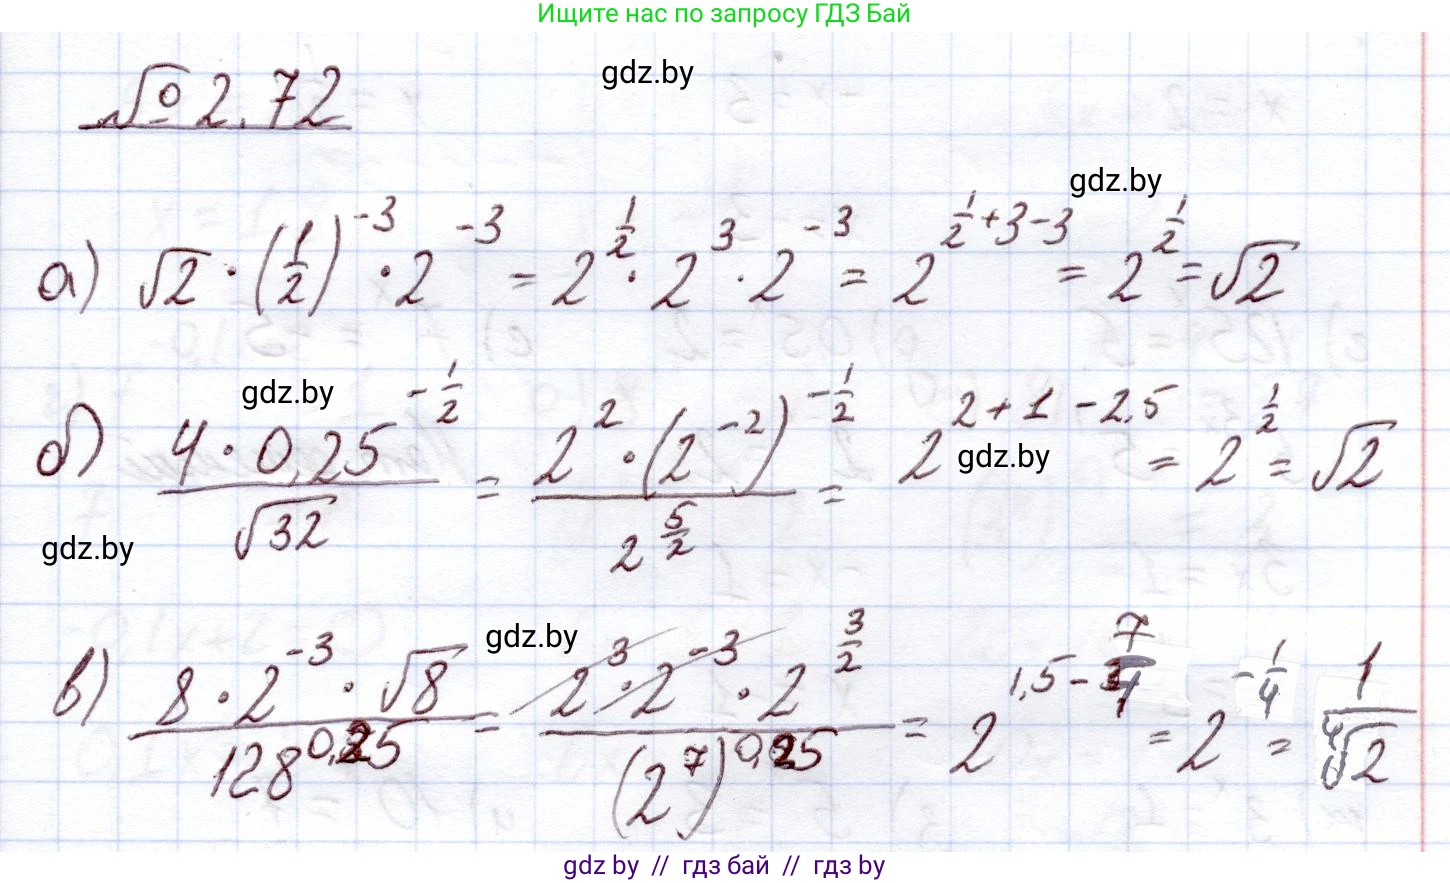 Ищите нас по запросу ГДЗ Бай
gdz.by
№ 2.72
gdz.by
а) √2 · (1/2)^-3 · 2^-3 = 2^1/2 · 2^3 · 2^-3 = 2^1/2+3-3 = 2^1/2 = √2
gdz.by
б) 4 · 0,25^-1/2 / √32 = 2^2 · (2^-2)^-1/2 / 2^5/2 = 2^2+1-2,5 = 2^1/2 = √2
gdz.by
gdz.by
gdz.by
в) 8 · 2^-3 · √8 / 128^0,25 = 2^3 · 2^-3 · 2^3/2 / (2^7)^0,25 = 2^1,5-7/4 = 2^-1/4 = 1/⁴√2
gdz by // гдз бай // гдз by